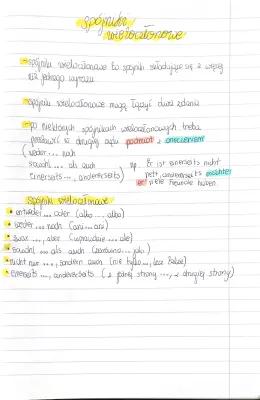 spójniki
wieloczłonowe
- spójniki wieloczłonowe to spójniki składające się z więcej
niż jednego wyrazu
- spójniki wieloczłonowe mogą łączyć dwa zdania
- po niektórych spójnikach wieloczłonowych trzeba
przestawić w drugiej części podmiot z orzeczeniem
(weder... noch
sowohl... als auch
einerseits..., andererseits)
np. Er ist einerseits nicht
nett, andererseits möchte
er viele Freunde haben.
spójniki wieloczłonowe
• entweder... oder (albo... albo)
• weder... noch (ani... ani)
• zwar..., aber (wprawdzie... ale)
• sowohl... als auch (zarówno... jak)
• nicht nur..., sondern auch (nie tylko..., lecz także)
• einerseits..., andererseits (z jednej strony..., z drugiej strony)